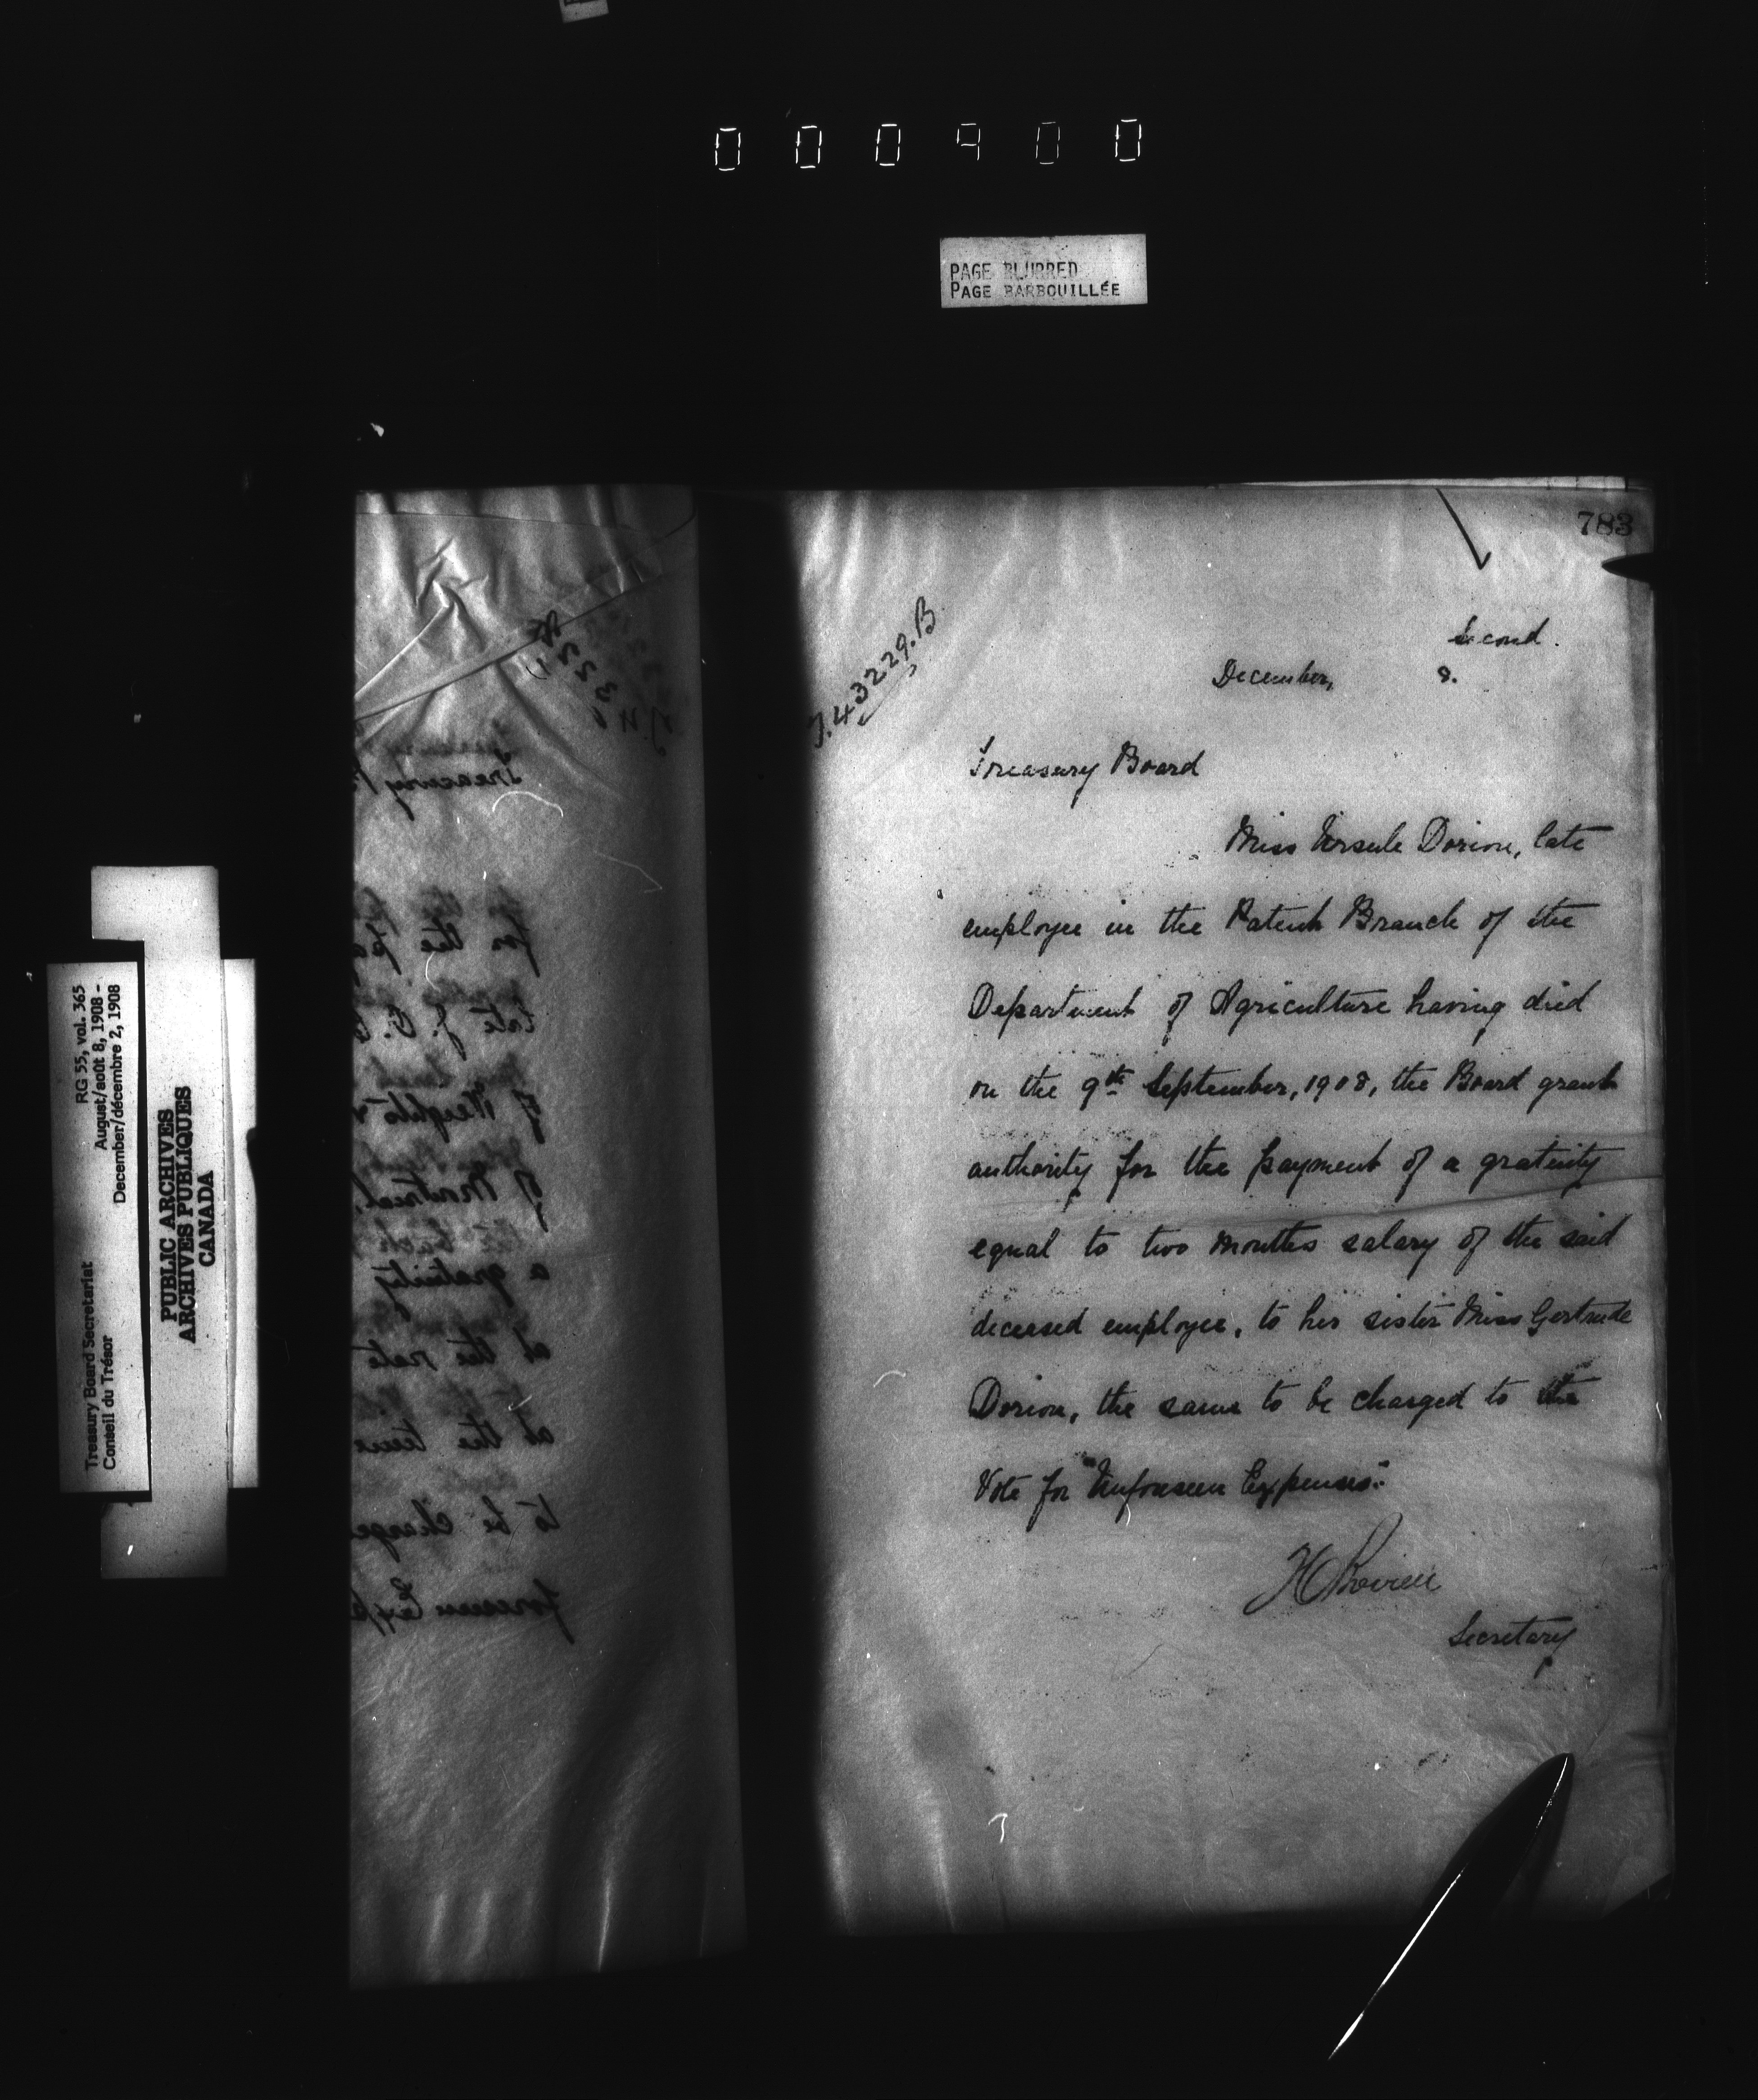 000900
PAGE BLURRED
PAGE BARBOUILLÉE
RG 55, vol. 365
August/août 8, 1908 -
December/décembre 2, 1908
Treasury Board Secretariat
Conseil du Trésor
PUBLIC ARCHIVES
ARCHIVES PUBLIQUES
CANADA
Treasury
for the
late J.
of Weights
of Montreal,
a gratuity
at the rate
at the time
to be charge
foreseen
783
43229.B
Second.
December, 8.
Treasury Board
Miss Ursule Dorion, late
employee in the Patent Branch of the
Department of Agriculture having died
on the 9th September, 1908, the Board grant
authority for the payment of a gratuity
equal to two months salary of the said
deceased employee, to her sister Miss Gertrude
Dorion, the same to be charged to the
Vote for "Unforeseen Expenses."
Secretary